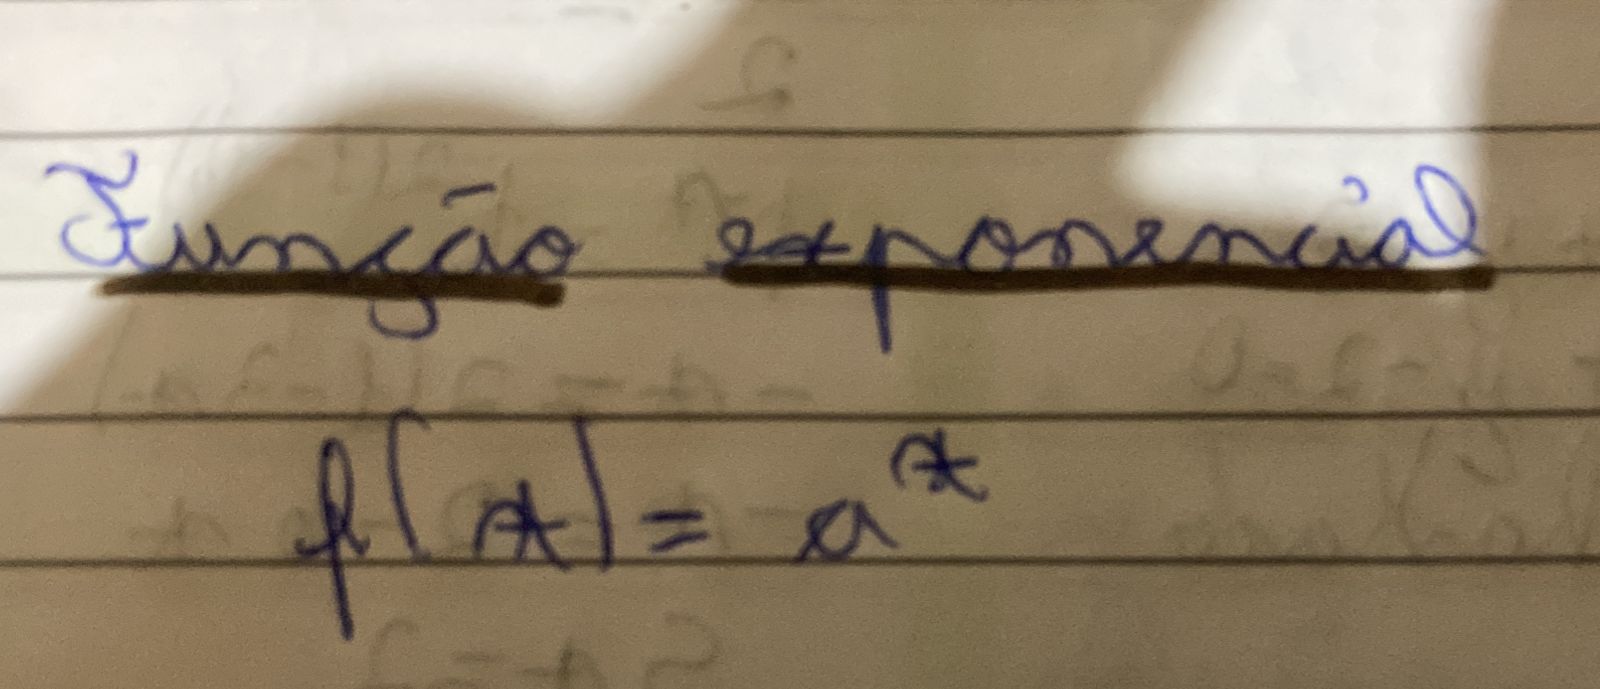 Função exponencial
f(x) = a^x